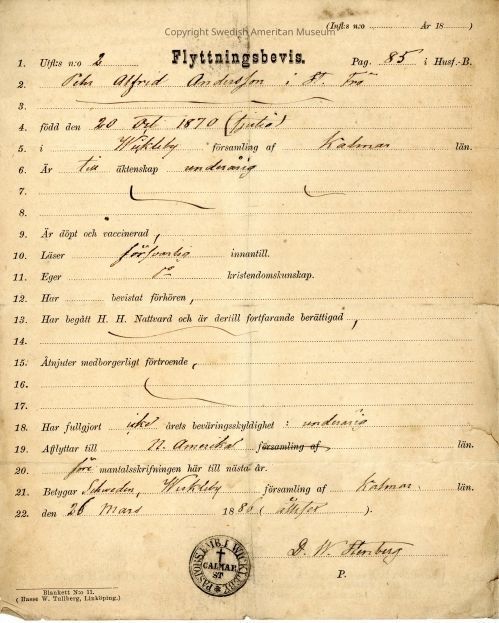 Copyright Swedish American Museum
(Infl:s n:o År 18 )
Flyttningsbevis.
1. Utfl:s n:o 2 Pag. 85 i Husf.-B.
2. Petr Alfred Andersson i St. Frö
3.
4. född den 20 Oct 1870 (sjutio)
5. i Wickleby församling af Kalmar län.
6. Är till äktenskap underårig
7.
8.
9. Är döpt och vaccinerad,
10. Läser försvarlig innantill.
11. Eger do kristendomskunskap.
12. Har bevistat förhören,
13. Har begått H. H. Nattvard och är dertill fortfarande berättigad,
14.
15. Åtnjuter medborgerligt förtroende,
16.
17.
18. Har fullgjort icke årets beväringsskyldighet: underårig
19. Afflyttar till N. Amerika församling af län.
20. före mantalsskrifningen här till nästa år.
21. Betygar Schweden, Wickleby församling af Kalmar län.
22. den 26 Mars 1886 (åttisex).
D. W. Stenberg
P.
PASTORS EMB. I WICKLEBY
CALMAR
ST
Blankett N:o 11.
(Hasse W. Tullberg, Linköping.)